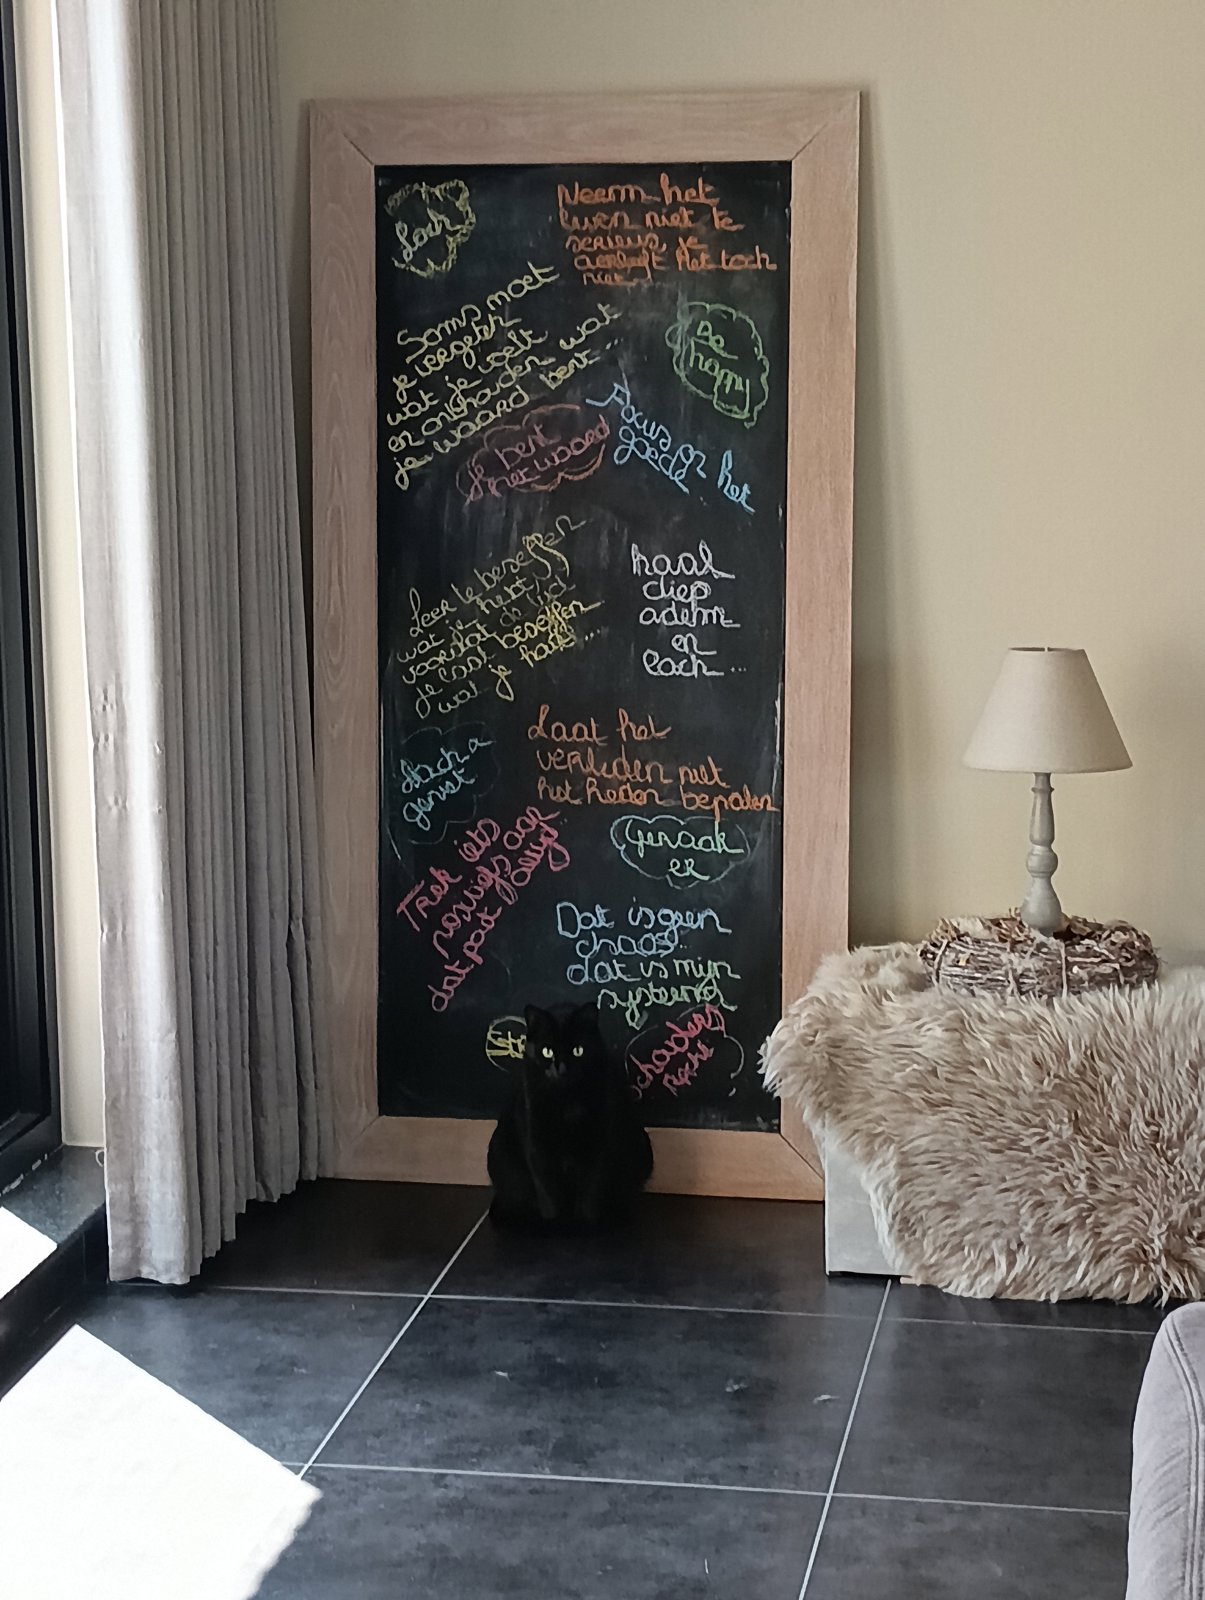 Neem het
leven niet te
serieus, je
overleeft het toch
niet...
Soms moet
je vergeten
wat je voelt
en onthouden wat
je waard bent...
Be
happy
Je bent
het waard
Focus op het
goede...
Leer te beseffen
wat je hebt
voordat de tijd
je laat beseffen
wat je had...
haal
diep
adem
en
lach...
Laat het
verleden niet
het heden bepalen
Lach &
geniet
Trek iets
positiefs aan
dat past altijd
Geraak
er
Dat is geen
chaos...
dat is mijn
systeem